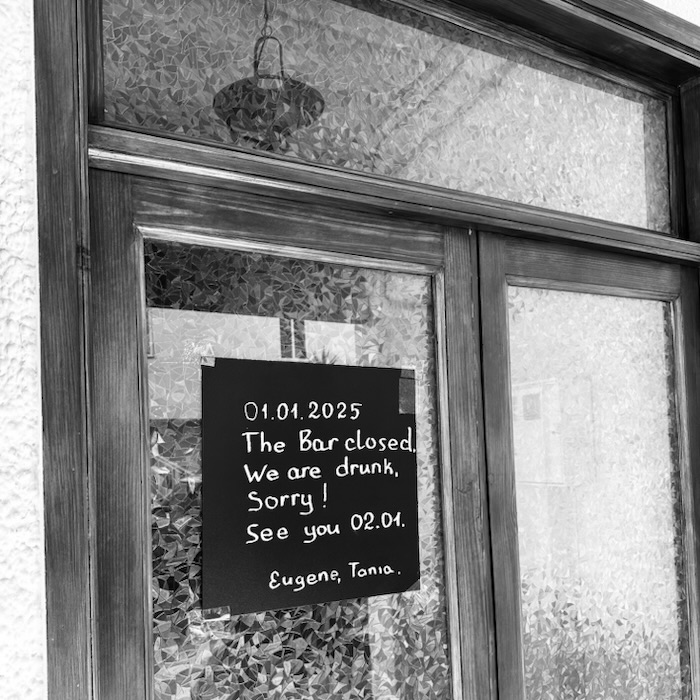 01.01.2025
The Bar closed.
We are drunk,
Sorry!
See you 02.01.
Eugene, Tania.